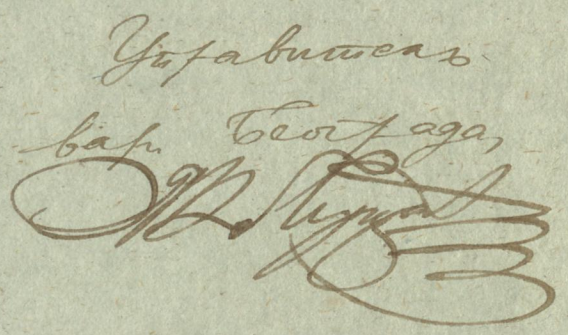 Управитељ
вар. Београда,